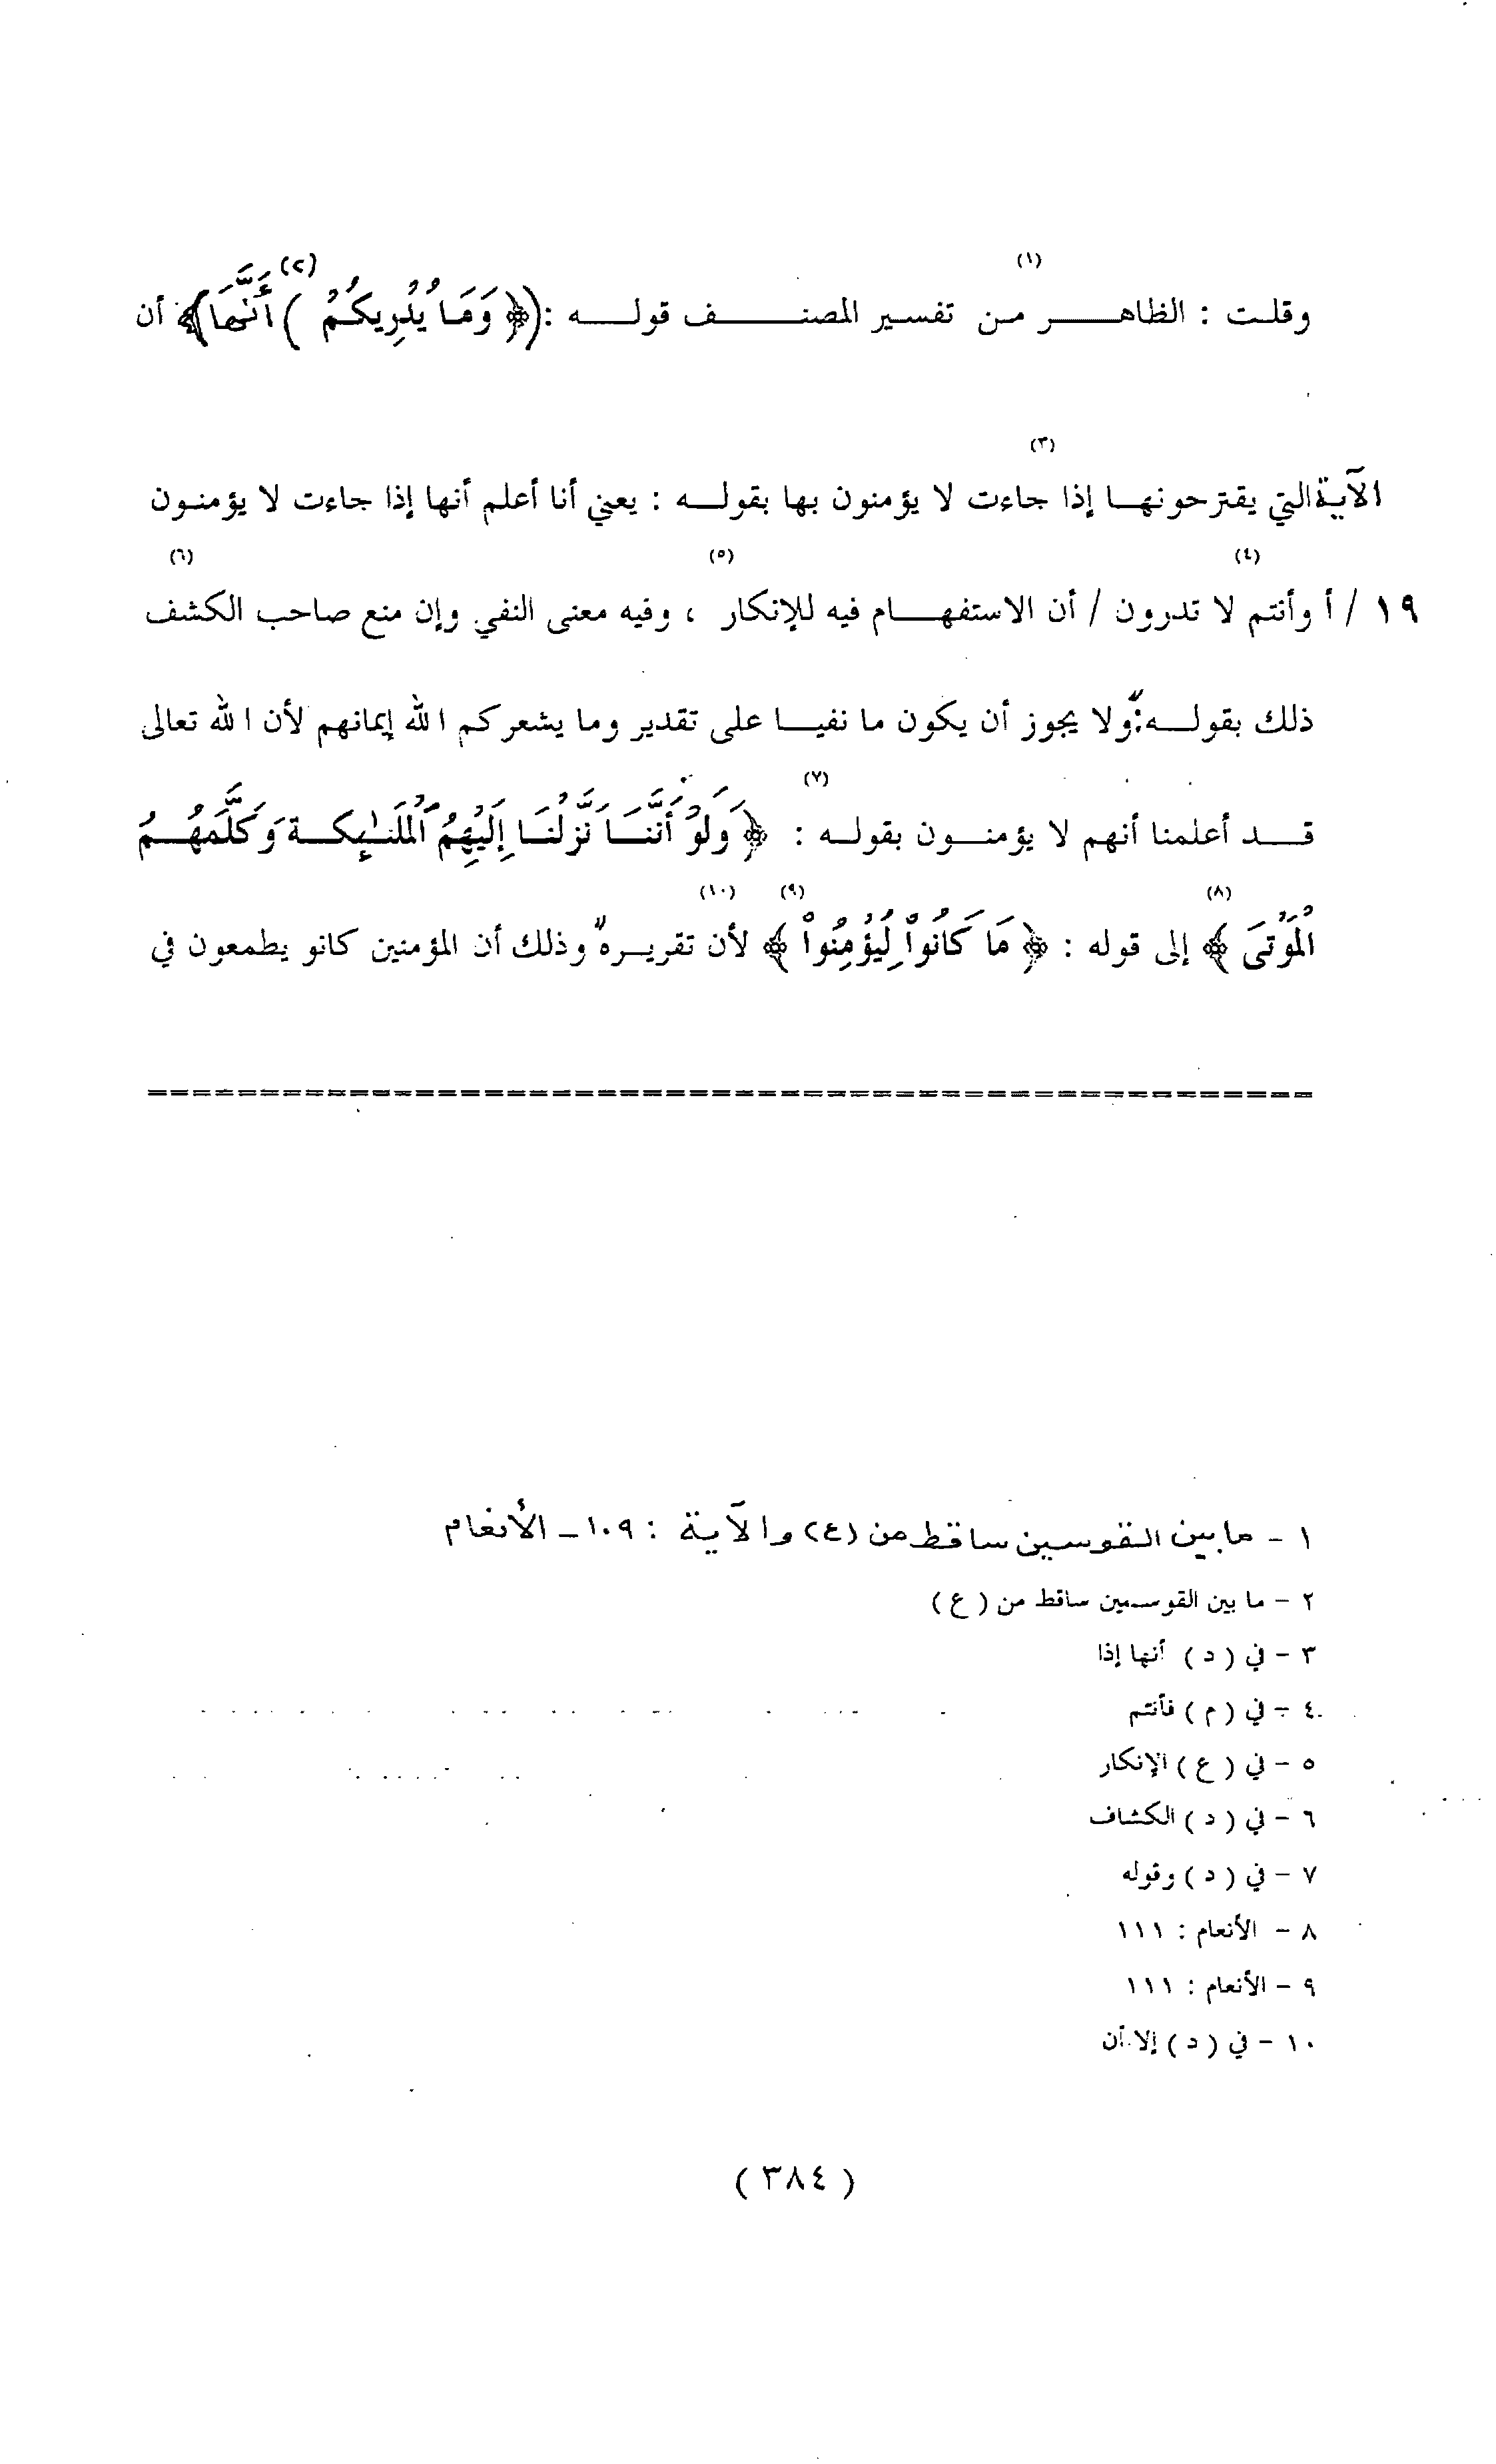 (١)
وقلت : الظاهر من تفسير المصنف قوله :(﴿ وَمَا يُدْرِيكُمْ ) أَنَّهَا﴾ أن (٢)
(٣)
الآية التي يقترحونها إذا جاءت لا يؤمنون بها بقوله : يعني أنا أعلم أنها إذا جاءت لا يؤمنون
(٤) (٥) (٦)
١٩ / أ وأنتم لا تدرون / أن الاستفهام فيه للإنكار ، وفيه معنى النفي وإن منع صاحب الكشف
ذلك بقوله:"ولا يجوز أن يكون ما نفيا على تقدير وما يشعركم الله إيمانهم لأن الله تعالى
(٧)
قد أعلمنا أنهم لا يؤمنون بقوله : ﴿ وَلَوْ أَنَّنَا نَزَّلْنَا إِلَيْهِمُ ٱلْمَلَٰٓئِكَةَ وَكَلَّمَهُمُ
(٨) (٩) (١٠)
ٱلْمَوْتَىٰ ﴾ إلى قوله : ﴿ مَا كَانُوا۟ لِيُؤْمِنُوا۟ ﴾ لأن تقريره" وذلك أن المؤمنين كانو يطمعون في
١ - ما بين القوسين ساقط من (ع) والآية : ١٠٩ - الأنعام
٢ - ما بين القوسين ساقط من ( ع )
٣ - في ( د ) أنها إذا
٤ - في ( م ) فأنتم
٥ - في ( ع ) الإنكار
٦ - في ( د ) الكشاف
٧ - في ( د ) وقوله
٨ - الأنعام : ١١١
٩ - الأنعام : ١١١
١٠ - في ( د ) إلا أن
( ٣٨٤ )